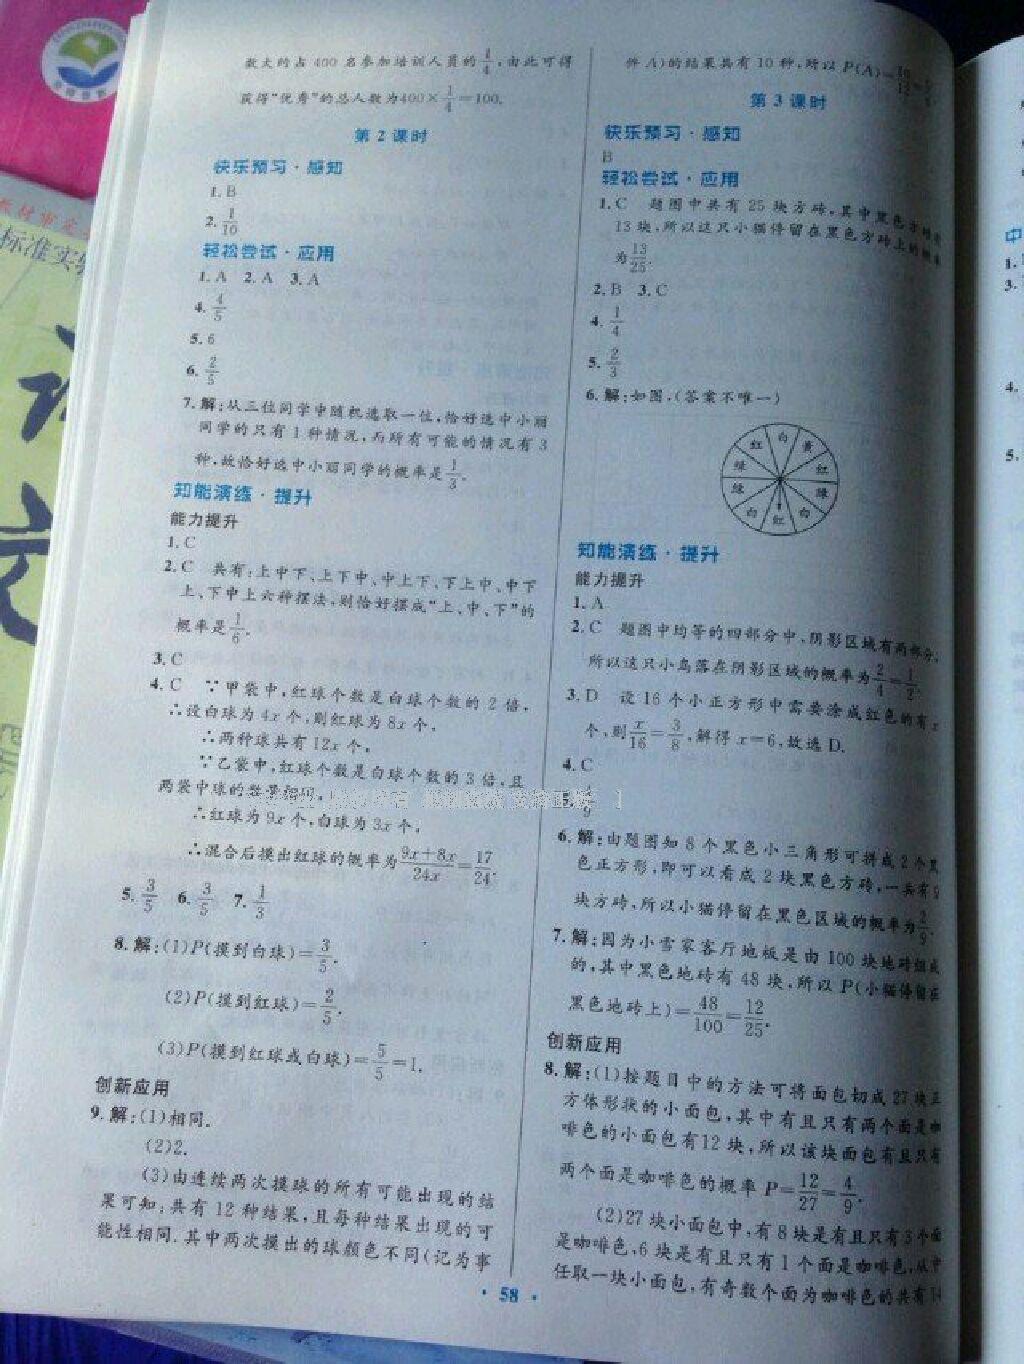 数大的占 400 名参加培训人员的 1/4,由此可得
获得“优秀”的总人数为400×1/4=100.
第 2 课时
快乐预习·感知
1.B
2. 1/10
轻松尝试·应用
1.A 2.A 3.A
4. 4/5
5.6
6. 2/5
7.解:从三位同学中随机选取一位,恰好选中小丽
同学的只有 1 种情况,而所有可能的情况有 3
种,故恰好选中小丽同学的概率是 1/3.
知能演练·提升
能力提升
1.C
2.C 共有:上中下、上下中、中上下、下上中、中下
上、下中上六种摆法,则恰好摆成“上、中、下”的
概率是 1/6.
3.C
4.C ∵甲袋中,红球个数是白球个数的 2 倍,
∴设白球为 4x 个,则红球为 8x 个.
∴两种球共有 12x 个.
∵乙袋中,红球个数是白球个数的 3 倍,且
两袋中球的数量相同,
∴红球为 9x 个,白球为 3x 个.
∴混合后摸出红球的概率为 (9x+8x)/24x=17/24.
5. 3/5 6. 3/5 7. 1/3
8.解:(1)P(摸到白球)=3/5.
(2)P(摸到红球)=2/5.
(3)P(摸到红球或白球)=5/5=1.
创新应用
9.解:(1)相同.
(2)2.
(3)由连续两次摸球的所有可能出现的结
果可知:共有 12 种结果,且每种结果出现的可
能性相同.其中两次摸出的球颜色不同(记为事
件 A)的结果共有 10 种,所以 P(A)=10/12=
第 3 课时
快乐预习·感知
B
轻松尝试·应用
1.C 题图中共有 25 块方砖,其中黑色方砖
13 块,所以这只小猫停留在黑色方砖上的概率
为 13/25.
2.B 3.C
4. 1/4
5. 2/3
6.解:如图,(答案不唯一)
红 白 黄
绿 红
绿 绿
白 红 白
知能演练·提升
能力提升
1.A
2.C 题图中均等的四部分中,阴影区域有两部分,
所以这只小鸟落在阴影区域的概率为 2/4=1/2.
3.D 设 16 个小正方形中需要涂成红色的有 x
个,则 x/16=3/8,解得 x=6,故选 D.
4.C
5. 4/9
6.解:由题图知 8 个黑色小三角形可拼成 2 个黑
色正方形,即可以看成 2 块黑色方砖,一共有 9
块方砖,所以小猫停留在黑色区域的概率为 2/9.
7.解:因为小雪家客厅地板是由 100 块地砖组成
的,其中黑色地砖有 48 块,所以 P(小猫停留在
黑色地砖上)=48/100=12/25.
创新应用
8.解:(1)按题目中的方法可将面包切成 27 块正
方体形状的小面包,其中有且只有两个面是咖
啡色的小面包有12 块,所以该块面包有且只有
两个面是咖啡色的概率 P=12/27=4/9.
(2)27 块小面包中,有 8 块是有且只有 3 个面
是咖啡色,6 块是有且只有 1 个面是咖啡色,从中
任取一块小面包,有奇数个面为咖啡色的共有 14
·58·
标准实验
语
文